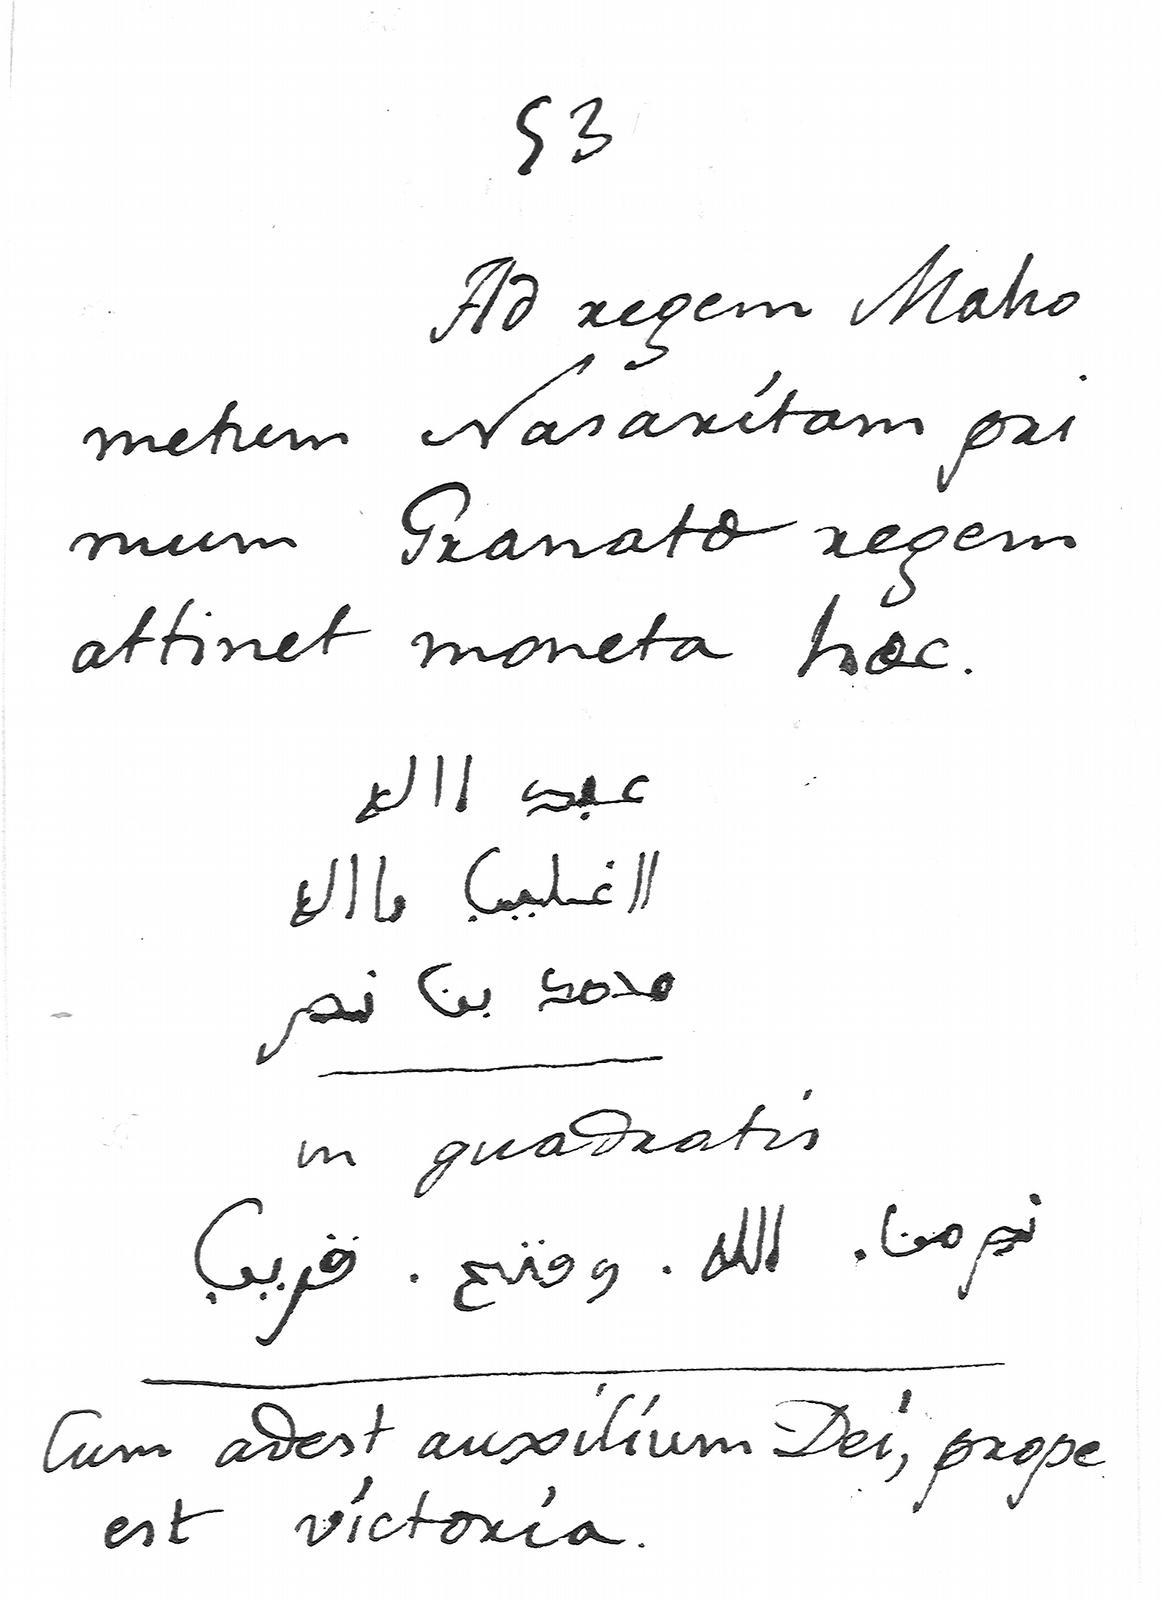 53
Ad regem Maho
metum Nasaritam pri
mum Granatæ regem
attinet moneta hæc.
عبد الله
الغلب بالله
محمد بن نصر
in quadratis
نصر من . الله . وفتح . قريب
Cum adest auxilium Dei, prope
est victoria.